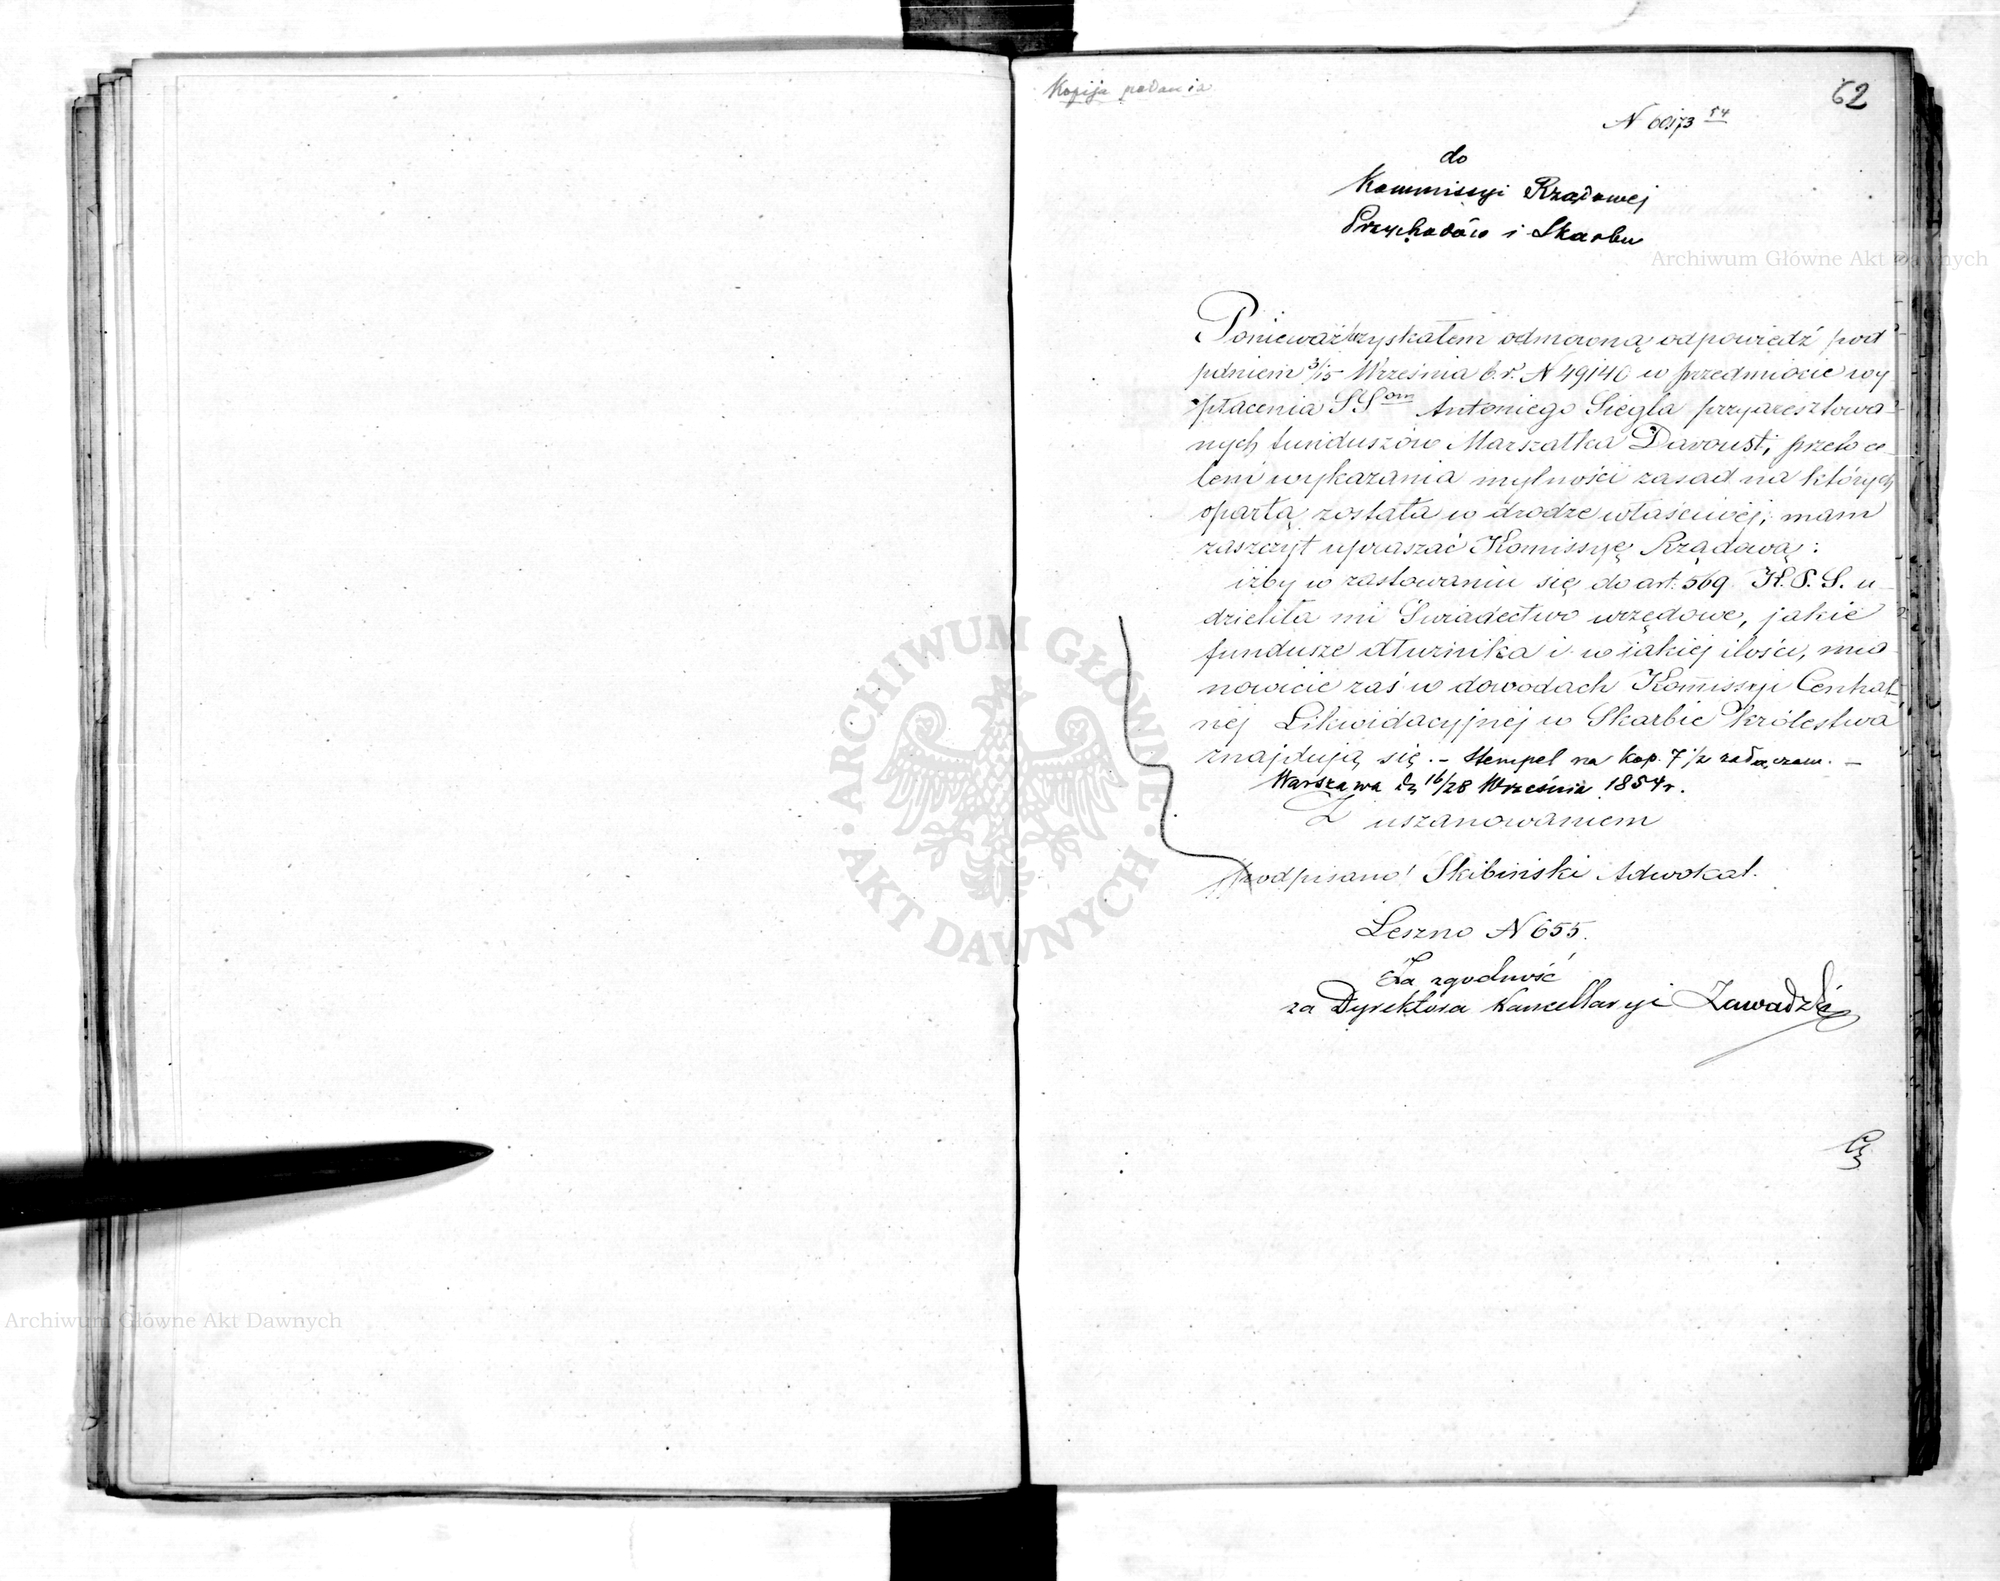 Kopija podania
62
N 60173 54
do
Kommissyi Rządowej
Przychodów i Skarbu
Archiwum Główne Akt Dawnych
Ponieważ uzyskałem odmowną odpowiedź pod
pdniem 3/15 Września b.r. N 49140 w przedmiocie wy
płacenia SSom Antoniego Siegla przyaresztowa-
nych funduszów Marszałka Davoust, przeto ce-
lem wykazania mylności zasad na których
opartą została w drodze właściwej, mam
zaszczyt upraszać Komissyę Rządową:
iżby w zastowaniu się do art. 569 K.P.S. u-
dzieliła mi Świadectwo urzędowe, jakie
fundusze dłużnika i w jakiej ilości, mia
nowicie zaś w dowodach Komissyi Central-
nej Likwidacyjnej w Skarbie Królestwa
znajdują się. – Stempel na kop. 7 1/2 załączam. –
Warszawa d. 16/28 Września 1854 r.
Z uszanowaniem
podpisano Skibiński Adwokat.
Leszno N 655.
Za zgodność
za Dyrektora Kancellaryi Zawadzki
ARCHIWUM GŁÓWNE · AKT DAWNYCH ·
Archiwum Główne Akt Dawnych